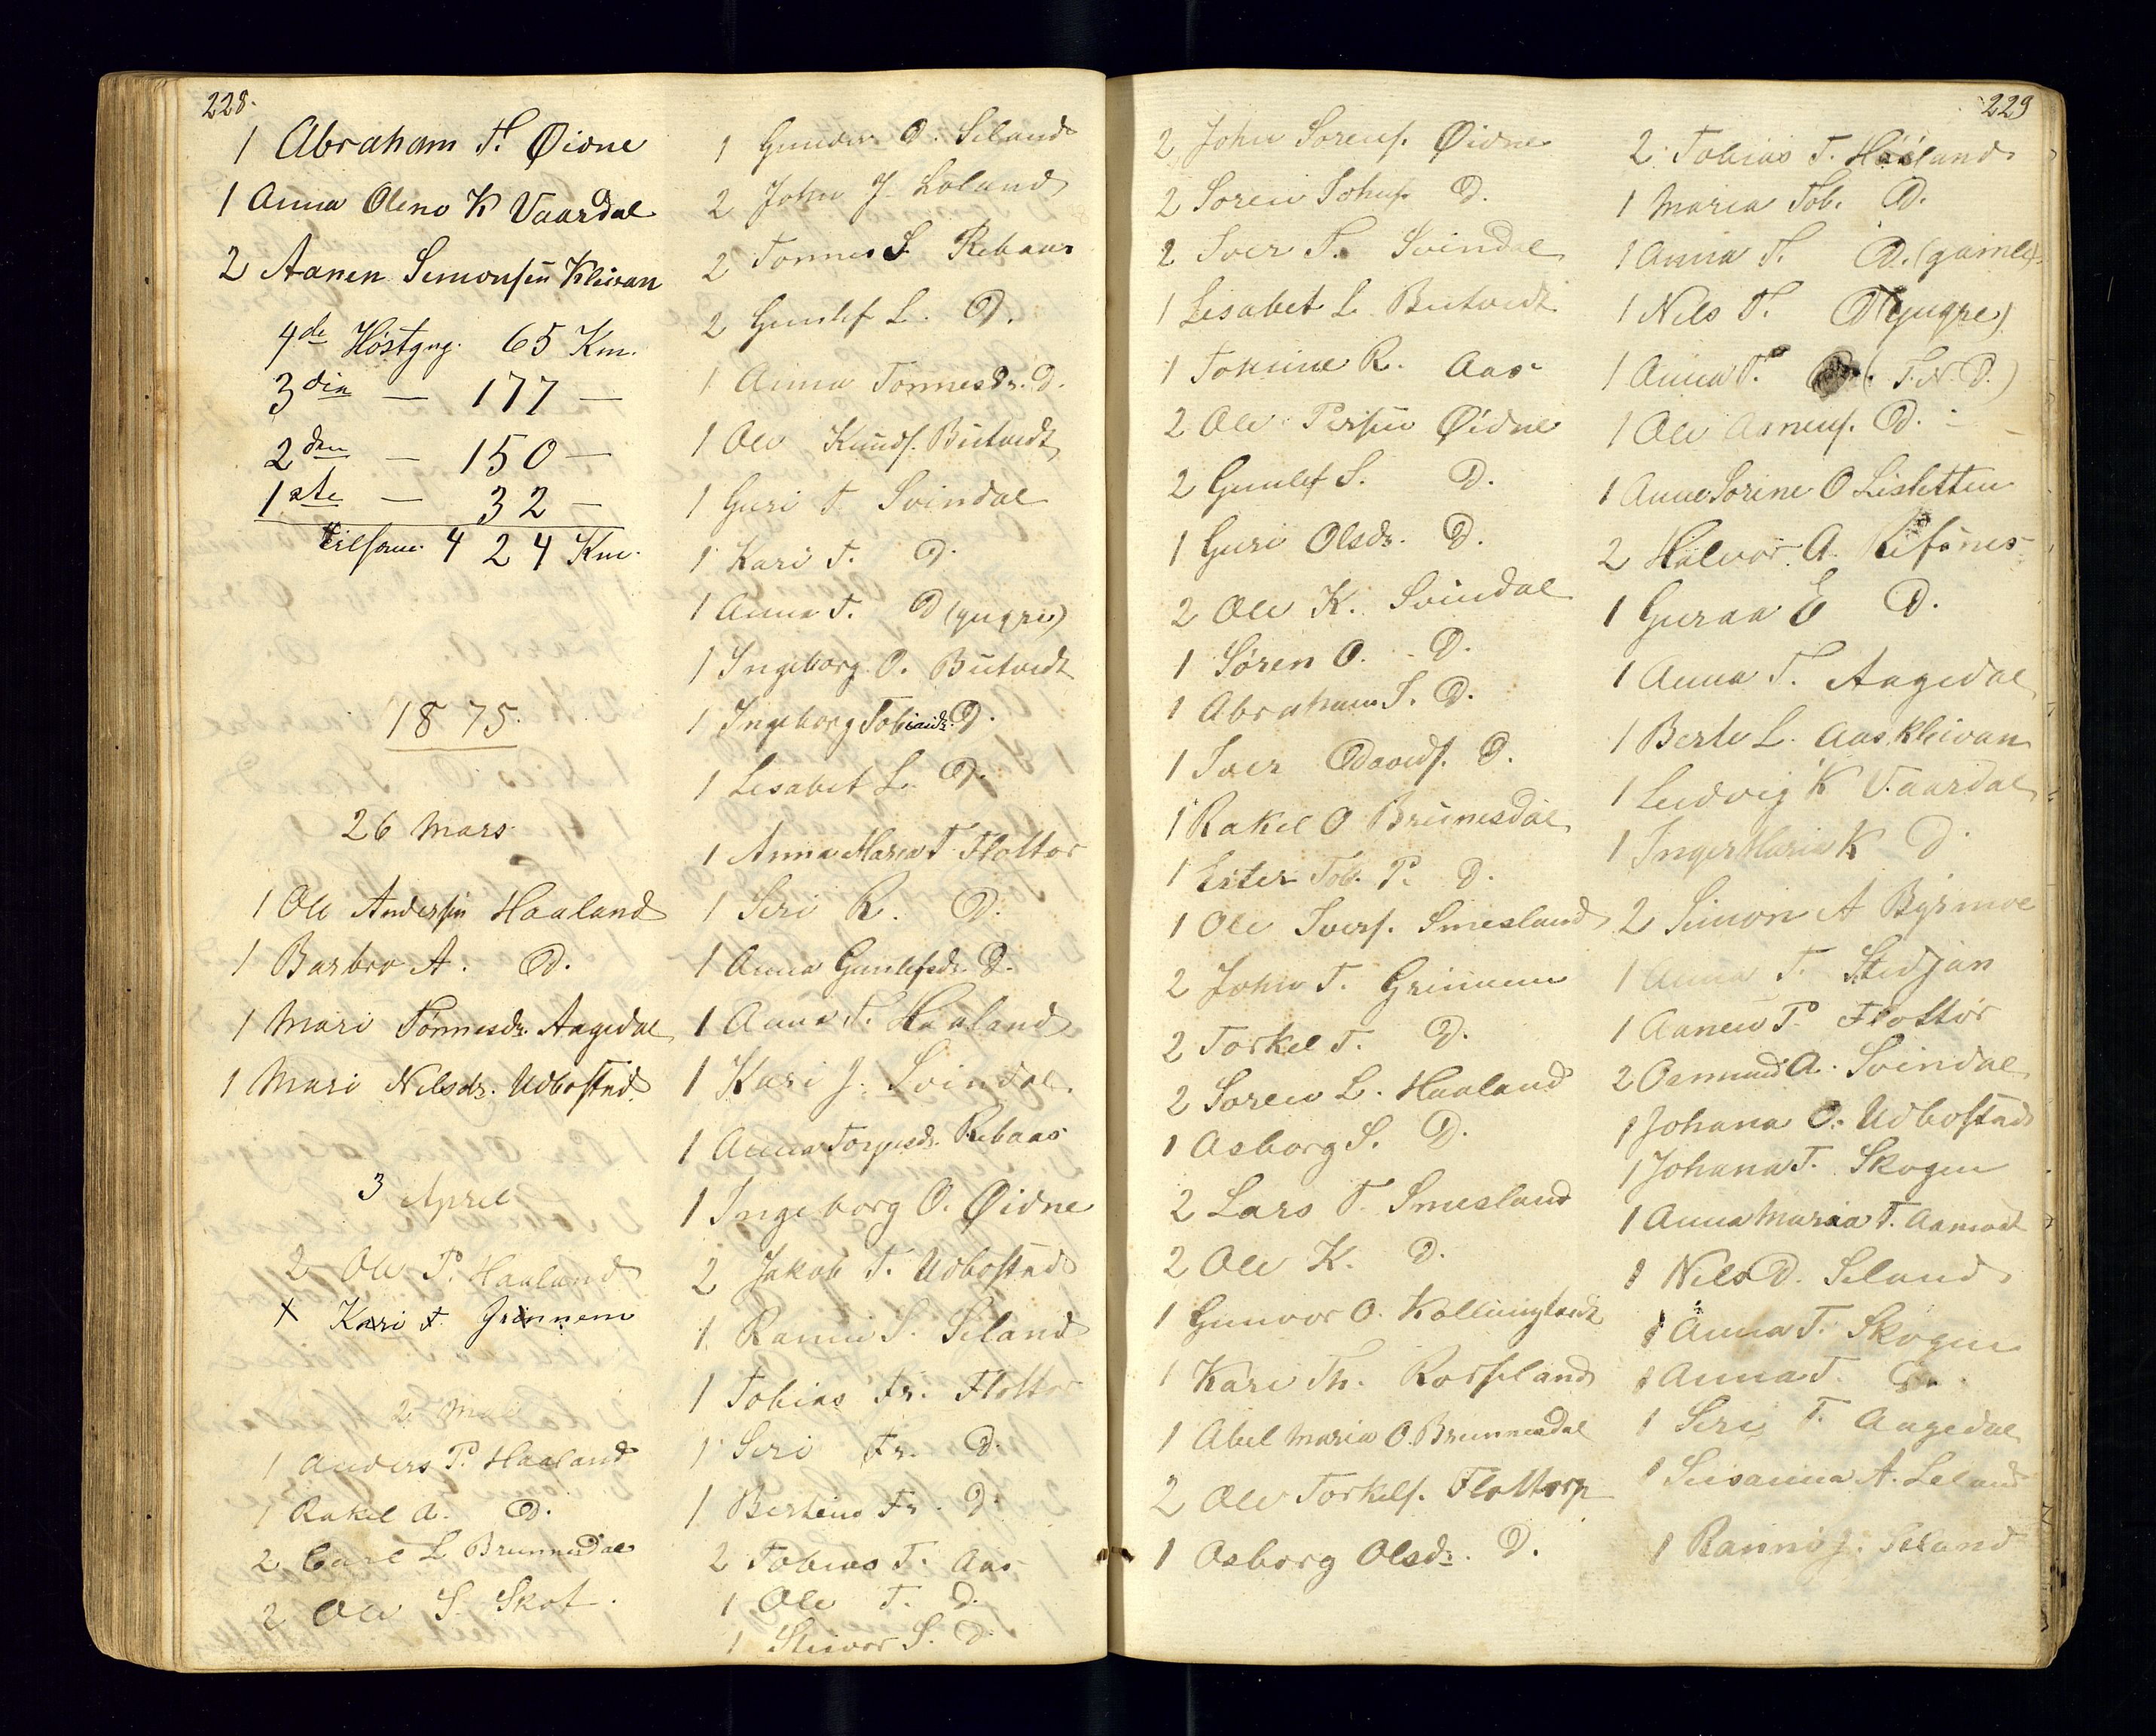 228.
1 Abraham T. Øidne
1 Anna Oline K Vaardal
2 Aanen Simonsen Kleivan
4de Höstgng. 65 Km.
3die — 177 —
2den — 150 —
1ste — 32 —
tilsam. 424 Km.
1875.
26 Mars
1 Ole Andersen Haaland
1 Barbro A. D.
1 Mari Tönnesdr. Aagedal
1 Mari Nilsdr. Udbostad
3 April
2 Ole P. Haaland
1 Kari T. Grinnem
2 Mai
1 Anders P. Haaland
1 Rakel A. D.
2 Carl L Brunnesdal
2 Ole S. Skof.
1 Gunder D. Seland
2 John J. Loland
2 Tonnes S. Rebaas
2 Gunlef L. D.
1 Anna Tonnesdr. D.
1 Ole Knuds. Butvedt
1 Guri T. Svindal
1 Kari T. D.
1 Anna T. D (yngre)
1 Ingeborg O. Butvedt
1 Ingeborg Tobiasdr. D.
1 Lisabet L. D.
1 Anna Maria T. Flottor
1 Seri R. D.
1 Anna Gunlefsdr. D.
1 Anna T. Haaland
1 Kari J. Svindal.
1 Anna Torjusdr. Rebaas
1 Ingeborg O. Øidne
2 Jakob T. Udbostad
1 Ranni S. Seland
1 Tobias Fr. Flottor
1 Seri Fr. D.
1 Bertine Fr. D.
2 Tobias T. Aas
1 Ole T. D.
1 Steivor S. D.
229
2 John Sorens. Øidne
2 Soren Johns. D.
2 Iver T. Svindal
1 Lisabet L. Butvedt
1 Tomine R. Aas
2 Ole Persen Øidne
2 Gunlef S. D.
1 Guri Olsdr. D.
2 Ole K. Svindal
1 Sören O. D.
1 Abraham T. D.
1 Iver Davids. D.
1 Rakel O Brunesdal
1 Ester Tob. P. D.
1 Ole Ivers. Smesland
2 John T. Grinnem
2 Torkel T. D.
2 Soren L. Haaland
1 Asborg S. D.
2 Lars T. Smesland
2 Ole K. D.
1 Gunvor O. Kollungtvedt
1 Kari Th. Rossland
1 Abel Maria O. Brunnesdal
2 Ole Torkels. Flottorp
1 Osborg Olsdr. D.
2 Tobias T. Haaland
1 Maria Tob. D.
1 Anna T. D. (gamle)
1 Nils T. D (yngre)
1 Anna T. D. (T. N. D.)
1 Ole Aanens. D.
1 Anne Sorine O Lisletten
2 Halvor A. Refsnes
1 Guraa E D.
1 Anna T. Aagedal
1 Berte L. Aaskleivan
1 Ludvig K Vaardal
1 Inger Maria K D.
2 Simon A Byrmoe
1 Anna T. Stedjan
1 Aanen P. Flottör
2 Osmund A. Svindal
1 Johana O. Udbostad
1 Johana T. Skogen
1 Anna Maria T. Aamodt
1 Nils D. Seland
1 Anna T. Skogen
1 Anna T. D.
1 Seri T. Aagedal
1 Susanna A. Leland
1 Ranni J. Seland